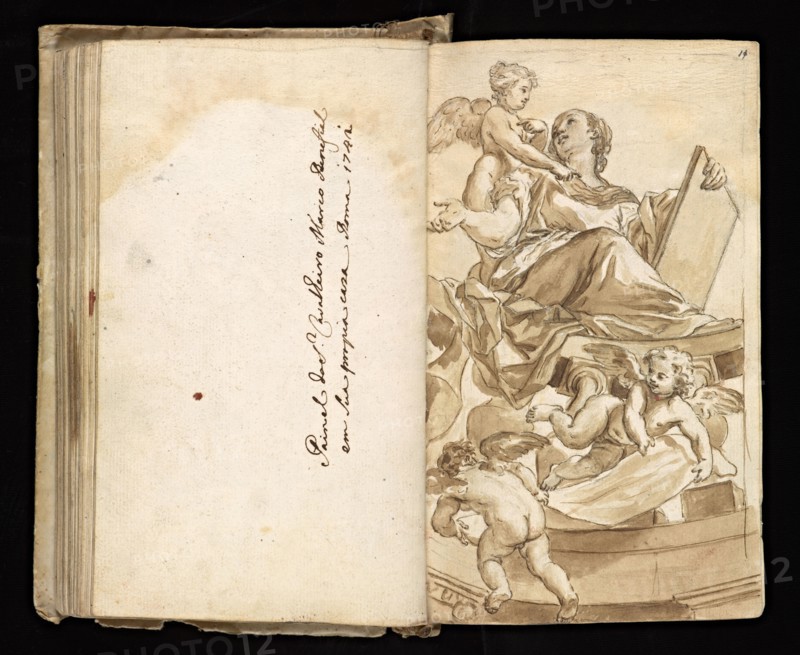 Painel do S.r Cavalheiro Marco Benefiel
em sua propria caza, Roma 1742
19
PHOTO12